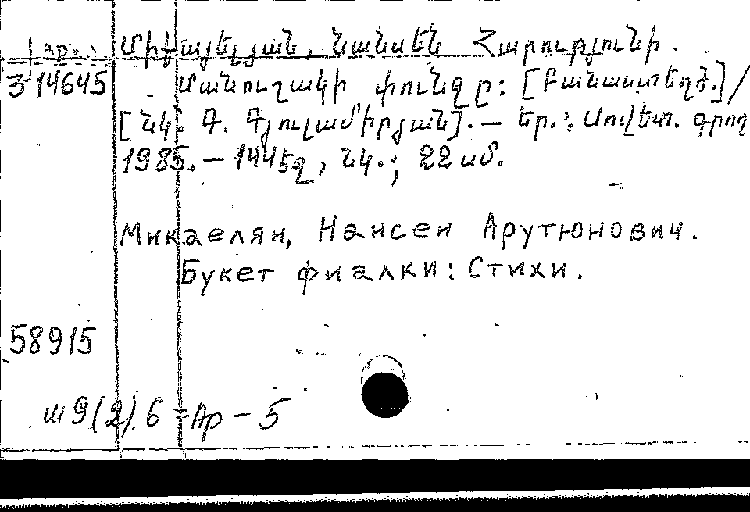 Միքայելյան, Նանսեն Հարությունի.
3 14645 Մանուշակի փունջը: [Բանաստեղծ.]/
[Նկ. Գ. Գյուլամիրյան].— Եր.: Սովետ. գրող
1985.— 144 էջ, նկ.; 22 սմ.
Микаелян, Нансен Арутюнович.
Букет фиалки: Стихи.
58915
ш 9(2) 6 = Ар — 5